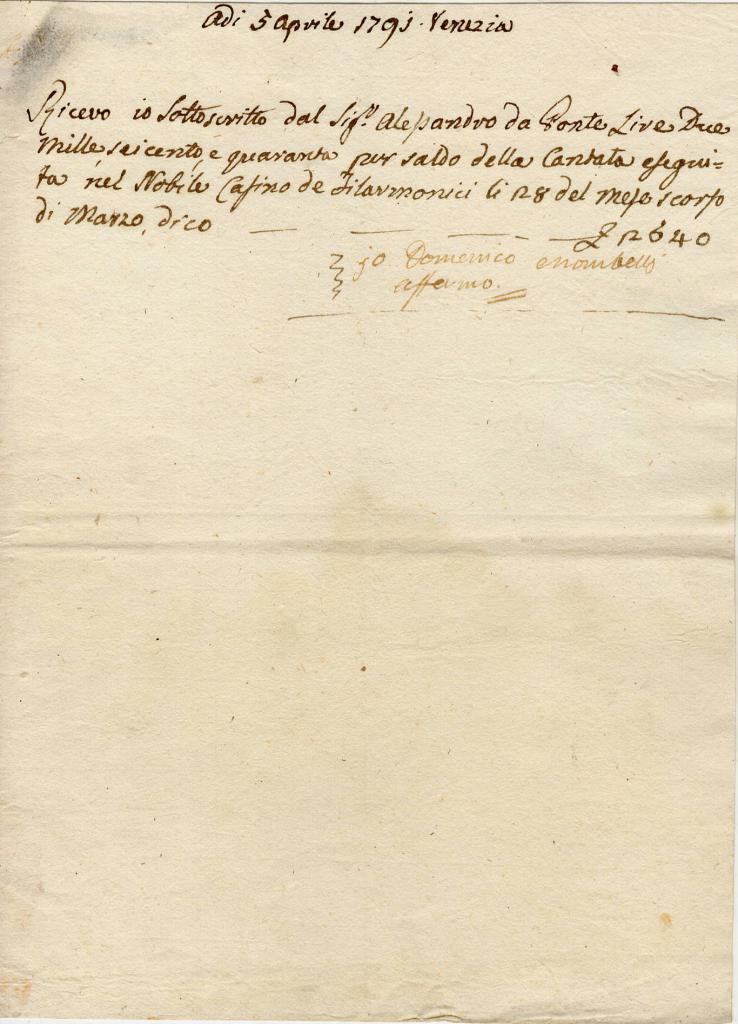 Adi 5 Aprile 1791. Venezia
Ricevo io Sottoscritto dal Sig.r Alessandro da Ponte Lire Due
Mille seicento, e quaranta per saldo della Cantata esegui=
ta nel Nobile Casino de Filarmonici li 28 del mese scorso
di Marzo, dico — — — — £ 2640
io Domenico Mombelli
affermo.